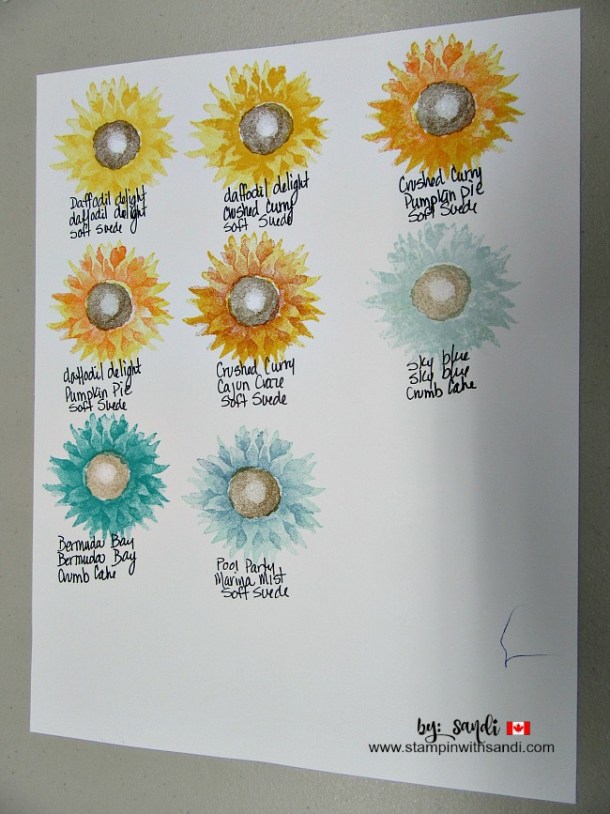 Daffodil delight
daffodil delight
Soft Suede
daffodil delight
Crushed Curry
Soft Suede
Crushed Curry
Pumpkin Pie
Soft Suede
daffodil delight
Pumpkin Pie
Soft Suede
Crushed Curry
Cajun Craze
Soft Suede
Sky blue
Sky blue
Crumb Cake
Bermuda Bay
Bermuda Bay
Crumb Cake
Pool Party
Marina Mist
Soft Suede
by: sandi
www.stampinwithsandi.com